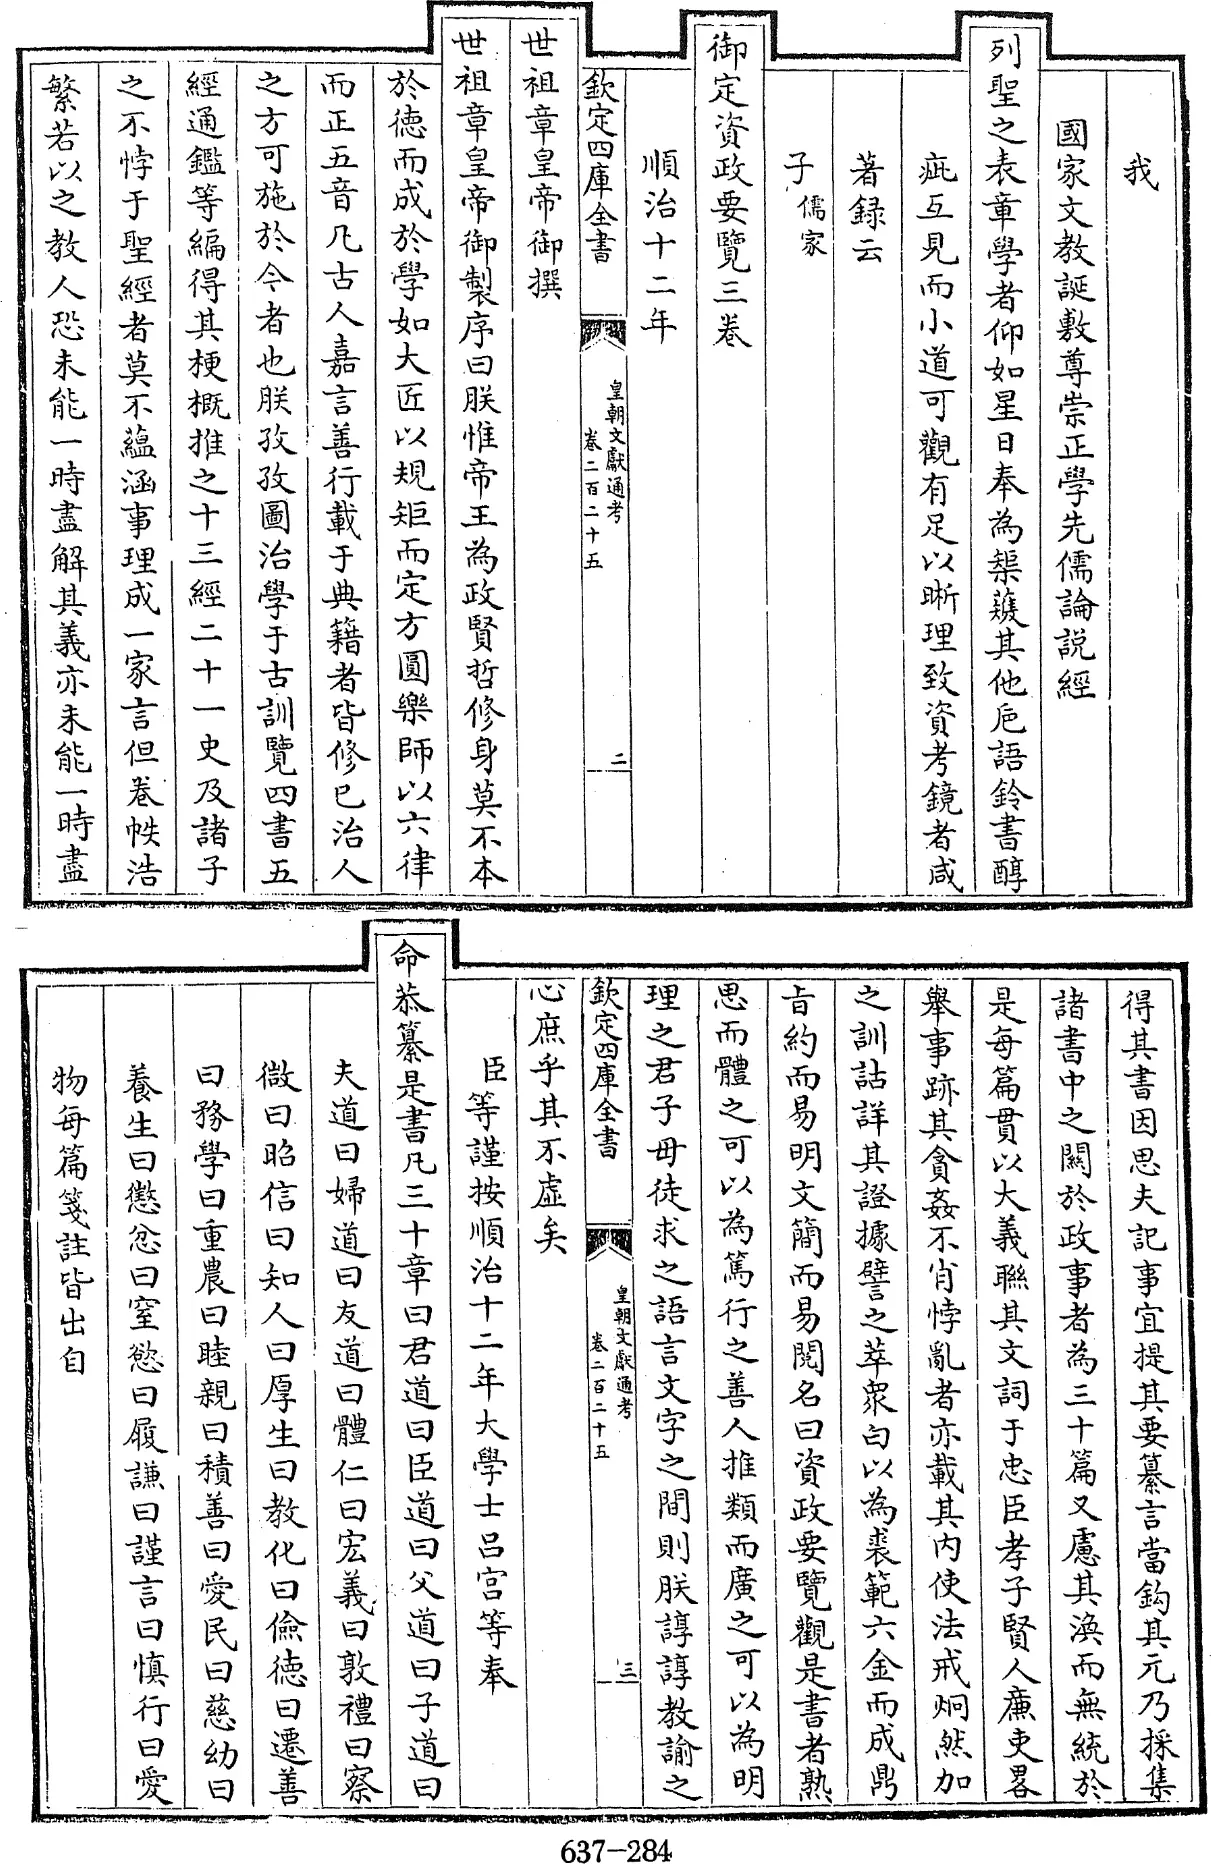 我
國家文教誕敷尊崇正學先儒論說經
列聖之表章學者仰如星日奉為榘矱其他卮語鈴書醇
疵互見而小道可觀有足以晰理致資考鏡者咸
著録云
子儒家
御定資政要覽三卷
順治十二年
欽定四庫全書
皇朝文獻通考
卷二百二十五
二
世祖章皇帝御撰
世祖章皇帝御製序曰朕惟帝王為政賢哲修身莫不本
於德而成於學如大匠以規矩而定方圓樂師以六律
而正五音凡古人嘉言善行載于典籍者皆修己治人
之方可施於今者也朕孜孜圖治學于古訓覽四書五
經通鑑等編得其梗概推之十三經二十一史及諸子
之不悖于聖經者莫不蘊涵事理成一家言但卷帙浩
繁若以之教人恐未能一時盡解其義亦未能一時盡
得其書因思夫記事宜提其要纂言當鈎其元乃採集
諸書中之關於政事者為三十篇又慮其渙而無統於
是每篇貫以大義聯其文詞于忠臣孝子賢人廉吏畧
舉事跡其貪姦不肖悖亂者亦載其内使法戒炯然加
之訓詁詳其證據譬之萃衆白以為裘範六金而成鼎
旨約而易明文簡而易閱名曰資政要覽觀是書者熟
思而體之可以為篤行之善人推類而廣之可以為明
理之君子毋徒求之語言文字之間則朕諄諄教諭之
欽定四庫全書
皇朝文獻通考
卷二百二十五
三
心庶乎其不虛矣
臣等謹按順治十二年大學士呂宫等奉
命恭纂是書凡三十章曰君道曰臣道曰父道曰子道曰
夫道曰婦道曰友道曰體仁曰宏義曰敦禮曰察
微曰昭信曰知人曰厚生曰教化曰儉德曰遷善
曰務學曰重農曰睦親曰積善曰愛民曰慈幼曰
養生曰懲忿曰窒慾曰履謙曰謹言曰慎行曰愛
物每篇箋註皆出自
637-284